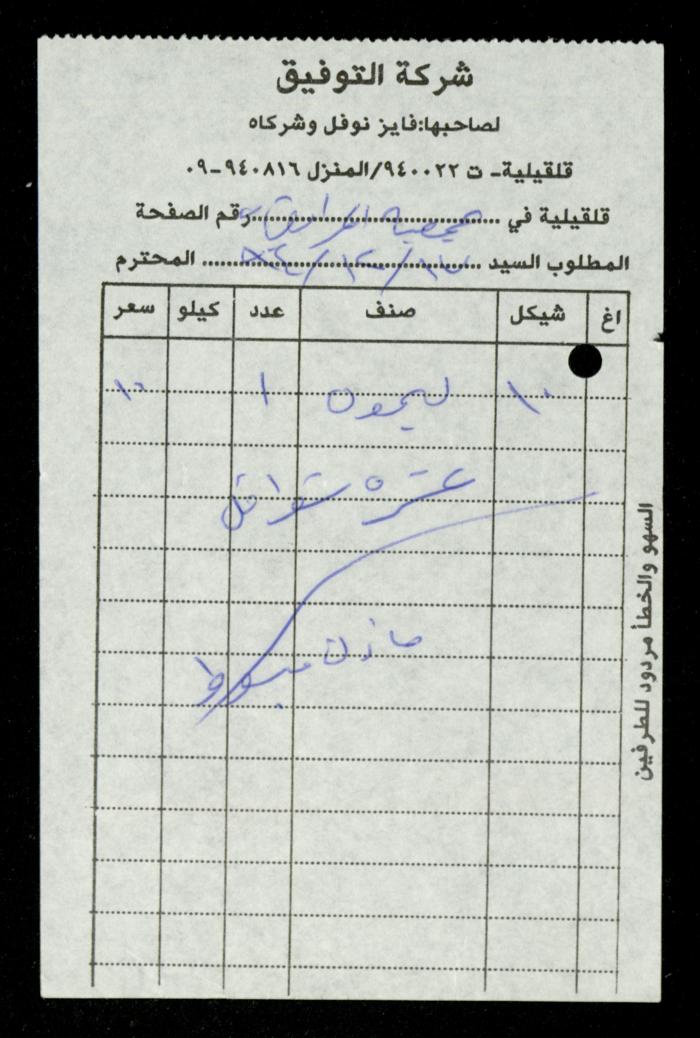 شركة التوفيق
لصاحبها:فايز نوفل وشركاه
قلقيلية- ت ٩٤٠٠٢٢/المنزل ٩٤٠٨١٦-٠٩
قلقيلية في جمعية المرابطات رقم الصفحة
المطلوب السيد ٩٤/١٢/١٧ المحترم
اغ شيكل صنف عدد كيلو سعر
١٠ ليمون ١ ١٠
عشرة شواقل
مازن
السهو والخطأ مردود للطرفين